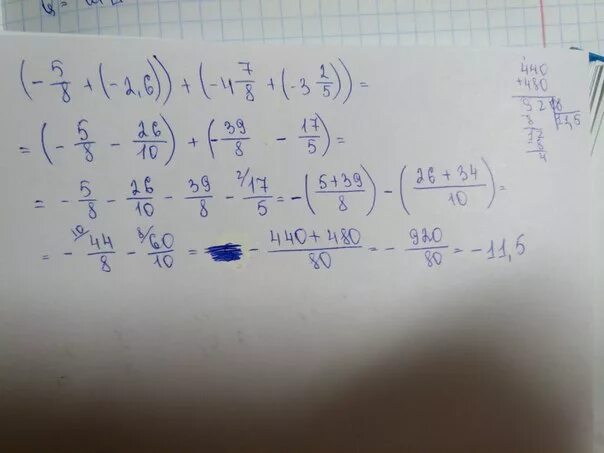 (-5/8 + (-2,6)) + (-4 7/8 + (-3 2/5)) =
= (-5/8 - 26/10) + (-39/8 - 17/5) =
= -5/8 - 26/10 - 39/8 - 2/17/5 = -((5+39)/8) - ((26+34)/10) =
= - 10/44/8 - 8/60/10 = - (440+480)/80 = - 920/80 = -11,5
440
+480
92 8
8 11,5
12
8
4